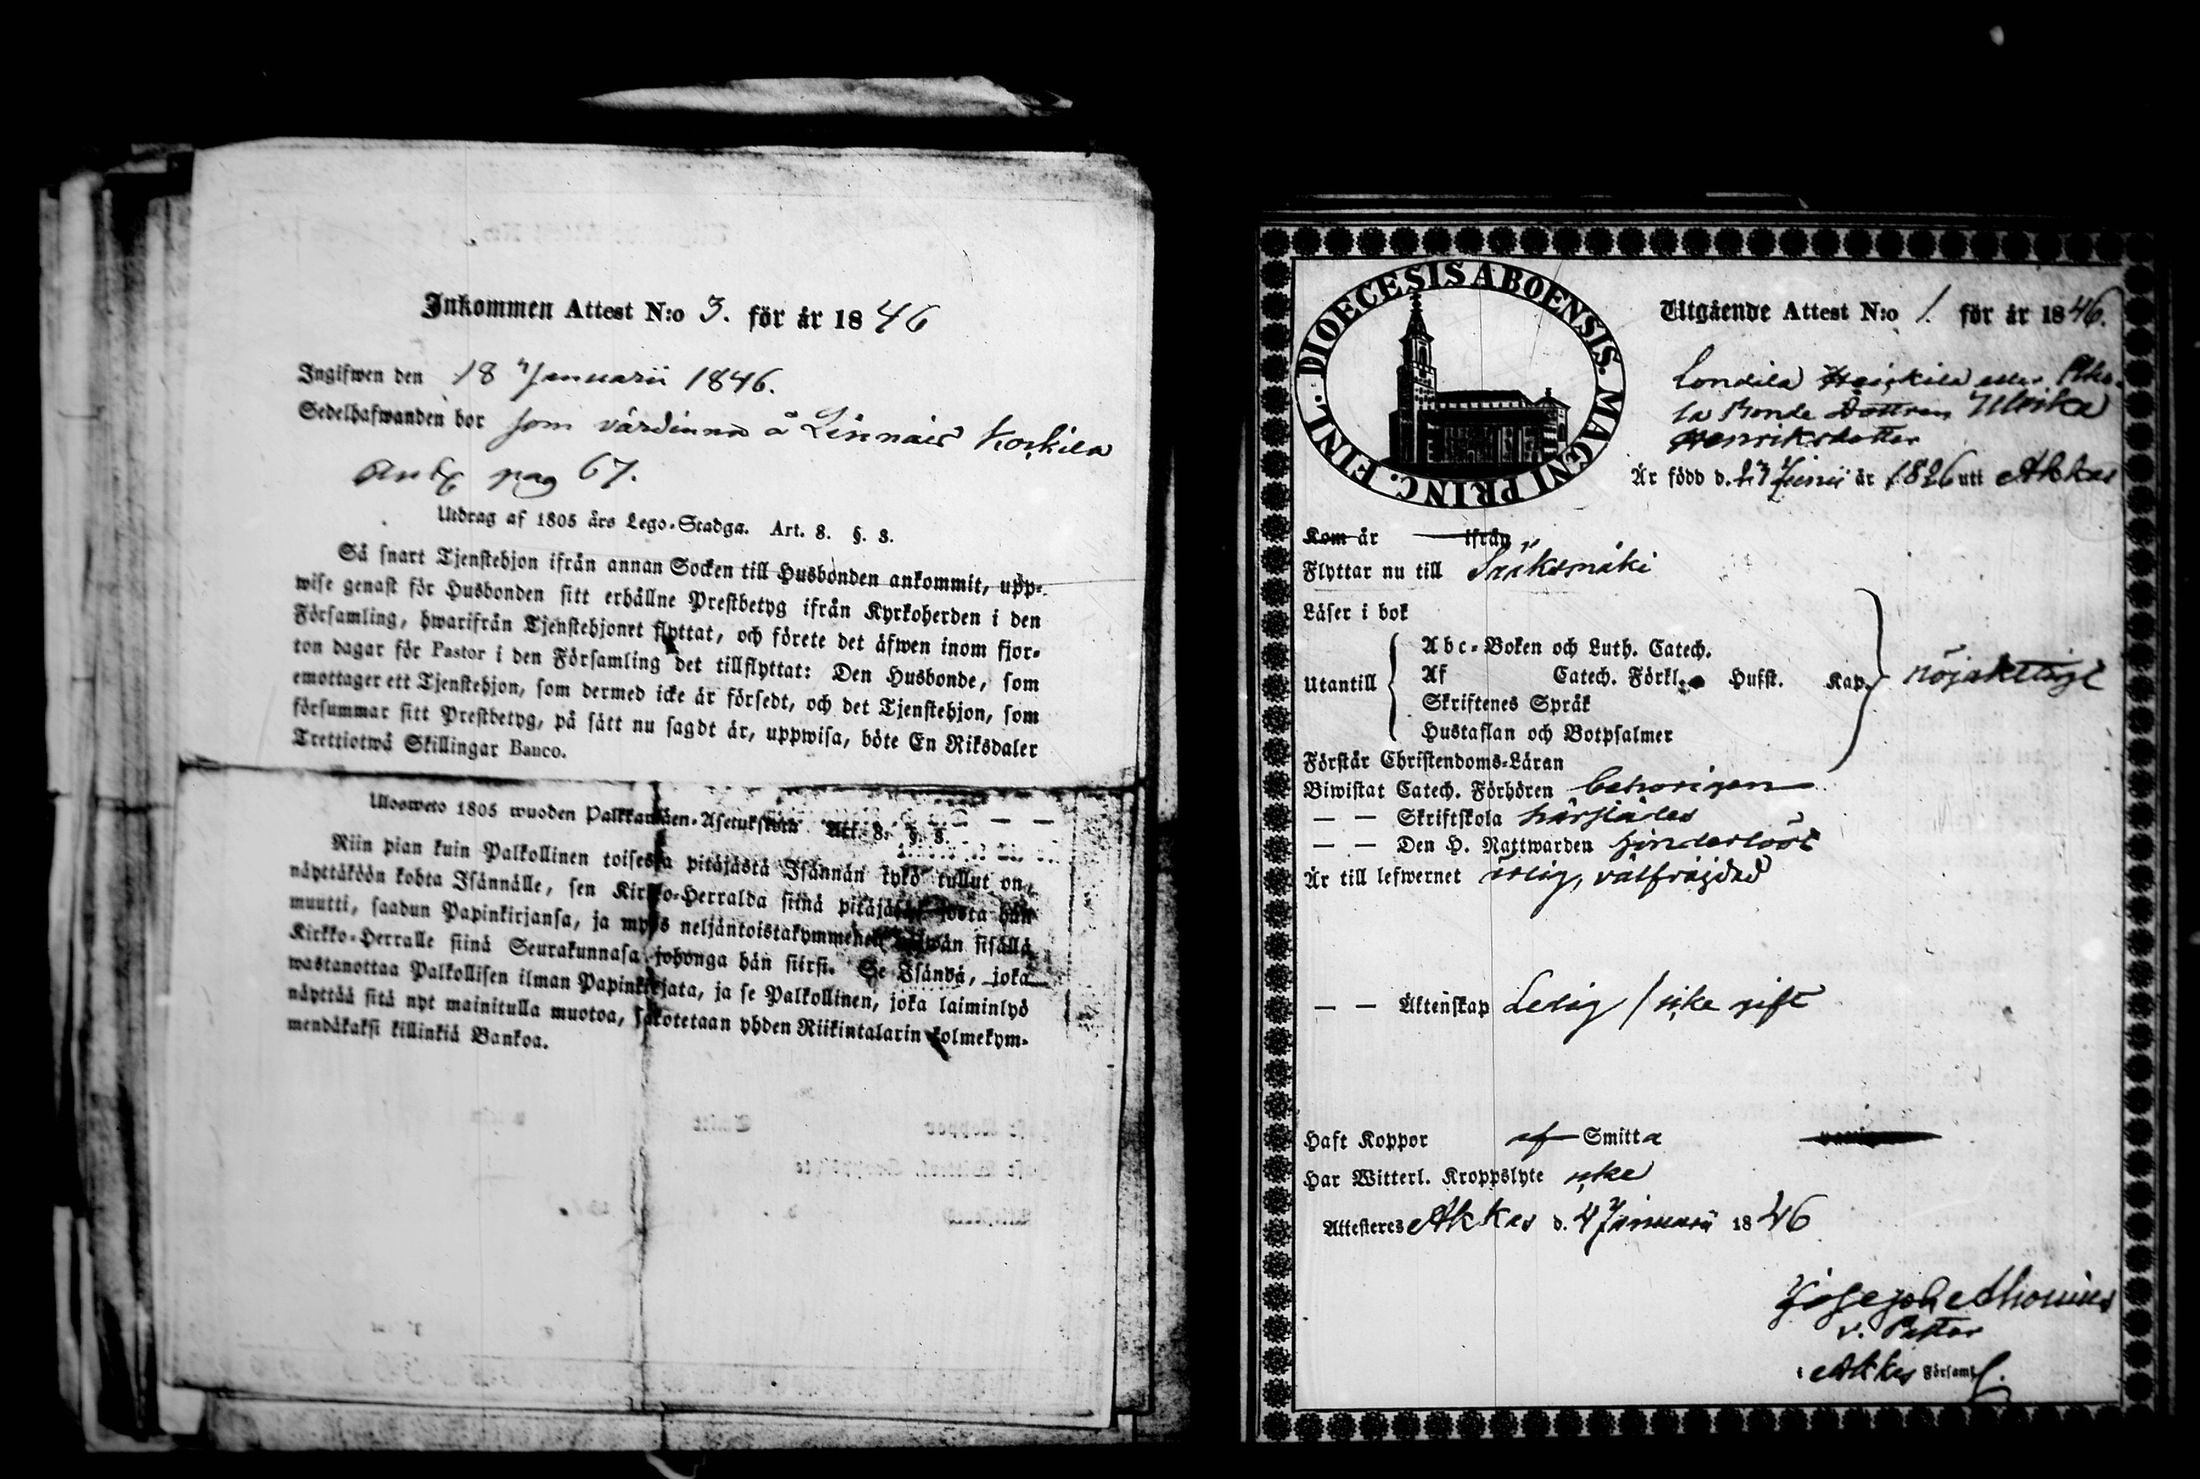 Inkommen Attest N:o 3. för år 1846
Ingifwen den 18 Januarii 1846.
Sedelhafwanden bor som värdinna å Linnais Korkila
pag 67.
Utdrag af 1805 års Lego-Stadga. Art. 8. §. 8.
Så snart Tjenstehjon ifrån annan Socken till Husbonden ankommit, upp-
wise genast för Husbonden sitt erhållne Prestbetyg ifrån Kyrkoherden i den
Församling, hwarifrån Tjenstehjonet flyttat, och förete det äfwen inom fjor-
ton dagar för Pastor i den Församling det tillflyttat: Den Husbonde, som
emottager ett Tjenstehjon, som dermed icke är försedt, och det Tjenstehjon, som
försummar sitt Prestbetyg, på sätt nu sagdt är, uppwisa, böte En Riksdaler
Trettiotwå Skillingar Banco.
Ulosweto 1805 wuoden Palkkawäen-Asetuksesta Art. 8. §. 8.
Niin pian kuin Palkollinen toisesta pitäjästä Isännän tykö tullut on,
näyttäköön kohta Isännälle, sen Kirkko-Herralda siinä pitäjäsä, josta hän
muutti, saadun Papinkirjansa, ja myös neljäntoistakymmenen päiwän sisällä
Kirkko-Herralle siinä Seurakunnasa johonga hän siirsi. Se Isändä, joka
wastanottaa Palkollisen ilman Papinkirjata, ja se Palkollinen, joka laiminlyö
näyttää sitä nyt mainitulla muotoa, sakotetaan yhden Riikintalarin kolmekym-
mendäkaksi killinkiä Bankoa.
DIOECESIS ABOENSIS. MAGNI PRINC. FINL.
Utgående Attest N:o 1. för år 1846.
Bonde Dottren Ulrika
Henriksdotter
Är född d. 27 Junii år 1826 uti Akkas
Kom år ifrån
Flyttar nu till Sääksmäki
Läser i bok
Utantill
Abc-Boken och Luth. Catech.
Af Catech. Förkl. Husst. Kap.
Skriftenes Språk
Hustaflan och Botpsalmer
nöjaktligt
Förstår Christendoms-Läran
Biwistat Catech. Förhören behörigen
— — Skriftskola härstädes
— — Den H. Nattwarden hinderlöst
Är till lefwernet ärlig, välfräjdad
— — Äktenskap Ledig / icke gift
Haft Koppor af Smitta
Har Witterl. Kroppslyte icke
Attesteres Akkas d. 4 Januarii 1846
Joseph
v. Pastor
i Akkas Församl.